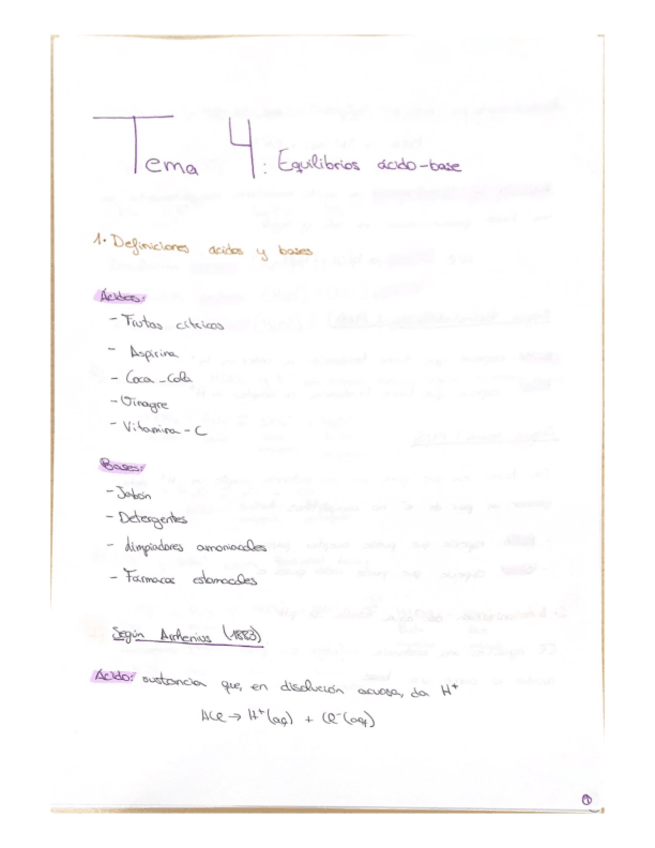 Tema 4: Equilibrios ácido-base
1. Definiciones ácidos y bases
Ácidos:
- Frutas cítricas
- Aspirina
- Coca-Cola
- Vinagre
- Vitamina-C
Bases:
- Jabón
- Detergentes
- Limpiadores amoniacales
- Fármacos estomacales
Según Arrhenius (1883)
Ácido: sustancia que, en disolución acuosa, da H⁺
HCl → H⁺(aq) + Cl⁻(aq)
1